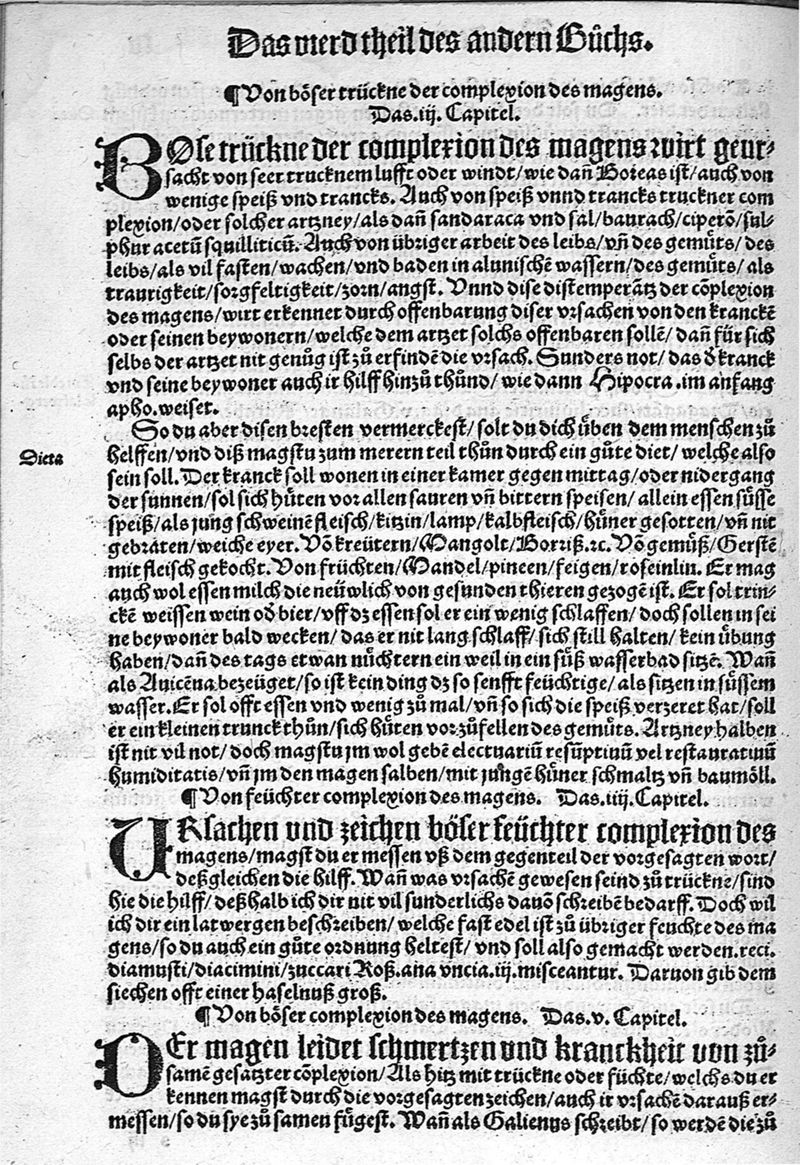 Das vierd theil des andern Bůchs.
¶Von böser trückne der complexion des magens.
Das.iij. Capitel.
BØse trückne der complexion des magens wirt geur⸗
sacht von seer trucknem lufft oder windt/wie dañ Boreas ist/auch von
wenige speiß vnd trancks. Auch von speiß vnnd trancks truckner com
plexion/oder solcher artzney/als dañ sandaraca vnd sal/baurach/ciperõ/sul⸗
phur acetũ squilliticũ. Auch von übriger arbeit des leibs/vñ des gemüts/des
leibs/als vil fasten/wachen/vnd baden in alunischẽ wassern/des gemüts/als
traurigkeit/sorgfeltigkeit/zorn/angst. Vnnd dise distemperãtz der cõplexion
des magens/wirt erkennet durch offenbarung diser vrsachen von den kranckẽ
oder seinen beywonern/welche dem artzet solchs offenbaren sollẽ/dañ für sich
selbs der artzet nit genůg ist zů erfindẽ die vrsach. Sunders not/das d̃ kranck
vnd seine beywoner auch ir hilff hinzů thůnd/wie dann Hipocra.im anfang
apho.weiset.
So du aber disen bresten vermerckest/solt du dich üben dem menschen zů
Dieta
helffen/vnd diß magstu zum merern teil thůn durch ein gůte diet/welche also
sein soll. Der kranck soll wonen in einer kamer gegen mittag/oder nidergang
der sunnen/sol sich hüten vor allen sauren vñ bittern speisen/allein essen süsse
speiß/als jung schweinẽ fleisch/kitzin/lamp/kalbfleisch/hüner gesotten/vñ nit
gebraten/weiche eyer. Võ kreütern/Mangolt/Borriß.ꝛc. Võ gemüß/Gerstẽ
mit fleisch gekocht. Von früchten/Mandel/pineen/feigen/roseinlin. Er mag
auch wol essen milch die neüwlich von gesunden thieren gezogẽ ist. Er sol trin⸗
ckẽ weissen wein od̃ bier/vff dz essen sol er ein wenig schlaffen/doch sollen in sei
ne beywoner bald wecken/das er nit lang schlaff/sich still halten/kein übung
haben/dañ des tags etwan nüchtern ein weil in ein süß wasserbad sitzẽ. Wañ
als Auicẽna bezeüget/so ist kein ding dz so senfft feüchtige/als sitzen in süssem
wasser. Er sol offt essen vnd wenig zů mal/vñ so sich die speiß verzeret hat/soll
er ein kleinen trunck thůn/sich hüten vor zůfellen des gemüts. Artzney halben
ist nit vil not/doch magstu jm wol gebẽ electuariũ resũptiuũ vel restauratiuũ
humiditatis/vñ jm den magen salben/mit jungẽ hüner schmaltz vñ baumöll.
¶Von feüchter complexion des magens. Das.iiij.Capitel.
VRsachen vnd zeichen böser feüchter complexion des
magens/magst du ermessen vß dem gegenteil der vorgesagten wort/
deßgleichen die hilff. Wañ was vrsachẽ gewesen seind zů trückne/sind
hie die hilff/deßhalb ich dir nit vil sunderlichs dauõ schreibẽ bedarff. Doch wil
ich dir ein latwergen beschreiben/welche fast edel ist zů übriger feuchte des ma
gens/so du auch ein gůte ordnung heltest/vnd soll also gemacht werden.reci.
diamusti/diacimini/zuccari Roß.ana vncia.iij.misceantur. Daruon gib dem
siechen offt einer haselnuß groß.
¶Von böser complexion des magens. Das.v. Capitel.
DEr magen leidet schmertzen vnd kranckheit von zů⸗
samẽ gesatzter cõplexion/Als hitz mit trückne oder füchte/welchs du er
kennen magst durch die vorgesagten zeichen/auch ir vrsachẽ darauß er⸗
messen/so du sye zů samen fügest. Wañ als Galienus schreibt/so werdẽ die zů